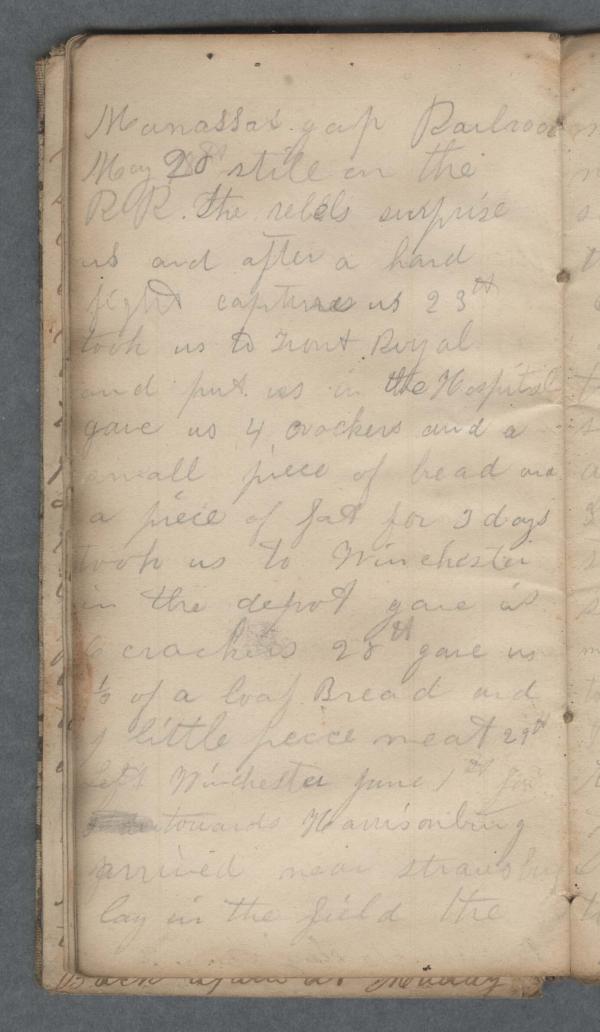 Manassas gap Railroad
May 28th still on the
R R. the rebels surprise
us and after a hard
fight captures us 23th
took us to Front Royal
and put us in the Hospital
gave us 4 crackers and a
small piece of bread and
a piece of fat for 3 days
took us to Winchester
in the depot gave us
6 crackers 28th gave us
of a loaf Bread and
little peece meat 29th
left Winchester June 1st
towards Harrisonburg
arrived near strausburg
lay in the field the